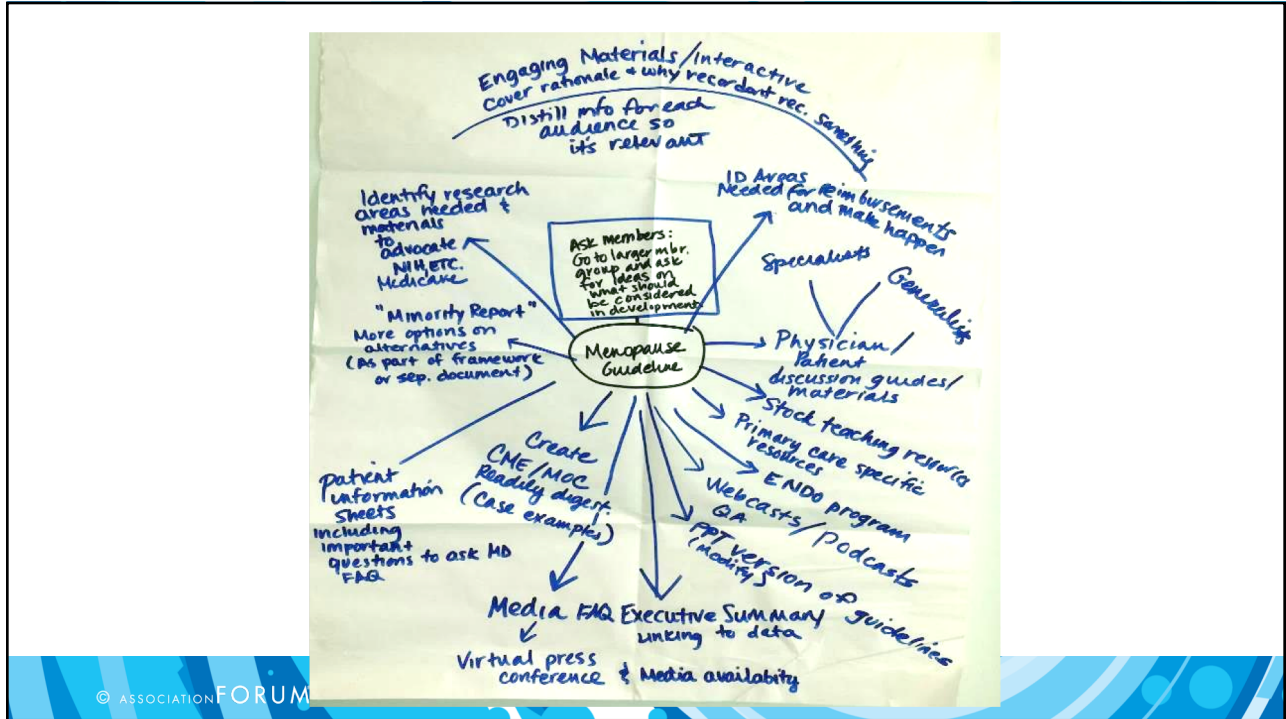 Engaging Materials/interactive
Cover rationale & why rec or dont rec. something
Distill info for each
audience so
it's relevant
Identify research
areas needed &
materials
to
advocate
NIH, ETC.
Medicare
Ask members:
Go to larger mbr.
group and ask
for ideas on
what should
be considered
in development
ID Areas
Needed for Reimbursements
and make happen
Specialists
Generalists
"Minority Report"
More options on
alternatives
(As part of framework
or sep. document)
Menopause
Guideline
Physician/
Patient
discussion guides/
materials
Stock teaching resources
Primary care specific
resources
ENDO program
Webcasts/Podcasts
QA
PPT version of guidelines
(Modify)
Create
CME/MOC
Readily digest.
(Case examples)
patient
information
sheets
including
important
questions to ask MD
FAQ
Media FAQ
Executive Summary
linking to data
Virtual press
conference & Media availabity
© ASSOCIATION FORUM